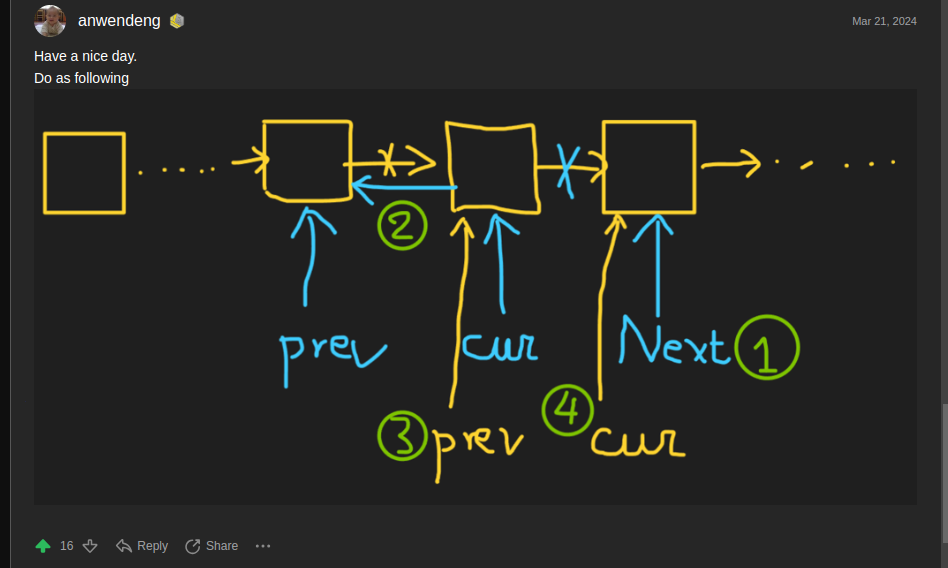 anwendeng
Mar 21, 2024
Have a nice day.
Do as following
2
prev
cur
Next 1
3 prev
4 cur
16
Reply
Share